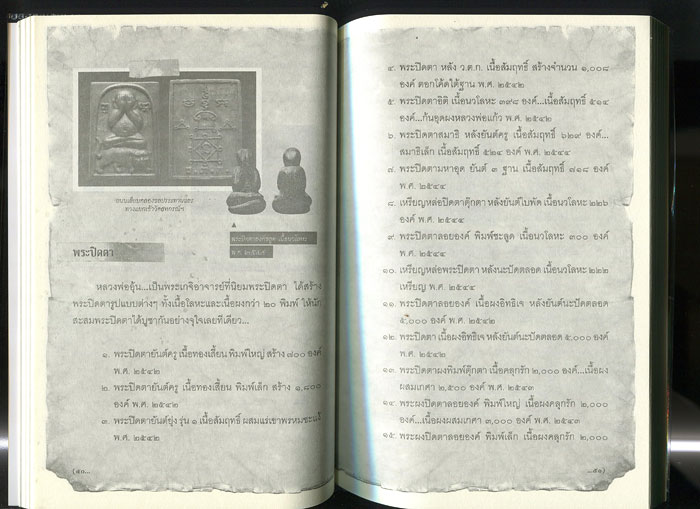 พระปิดตา
หลวงพ่ออุ้น...เป็นพระเกจิอาจารย์ที่นิยมพระปิดตา ได้สร้าง
พระปิดตารูปแบบต่างๆ ทั้งเนื้อโลหะและเนื้อผงกว่า ๒๐ พิมพ์ ให้นัก
สะสมพระปิดตาได้บูชากันอย่างจุใจเลยทีเดียว...
๑. พระปิดตายันต์ครู เนื้อทองเสี้ยน พิมพ์ใหญ่ สร้าง ๗๐๐ องค์
พ.ศ. ๒๕๔๒
๒. พระปิดตายันต์ครู เนื้อทองเสี้ยน พิมพ์เล็ก สร้าง
องค์ พ.ศ. ๒๕๔๒
๓. พระปิดตายันต์ยุ่ง รุ่น ๑ เนื้อสัมฤทธิ์ ผสมแร่เขาพรหมชะแง้
พ.ศ. ๒๕๔๒
(๕๐...
๔. พระปิดตา หลัง ว.ต.ก. เนื้อสัมฤทธิ์ สร้างจำนวน ๑,๐๐๘
องค์ ตอกโค้ดใต้ฐาน พ.ศ. ๒๕๔๒
๕. พระปิดตาอิติ เนื้อนวโลหะ ๓๙๘ องค์...เนื้อสัมฤทธิ์ ๕๑๔
องค์...ก้นอุดผงหลวงพ่อแก้ว พ.ศ. ๒๕๔๒
๖. พระปิดตาสมาธิ หลังยันต์ครู เนื้อสัมฤทธิ์ ๖๒๙ องค์...
สมาธิเล็ก เนื้อสัมฤทธิ์ ๕๒๔ องค์ พ.ศ. ๒๕๔๔
๗. พระปิดตามหาอุด ยันต์ ๓ ฐาน เนื้อสัมฤทธิ์ ๗๑๘ องค์
พ.ศ. ๒๕๔๔
๘. เหรียญหล่อปิดตาตุ๊กตา หลังยันต์ใบพัด เนื้อนวโลหะ ๒๒๖
องค์ พ.ศ. ๒๕๔๔
๙. พระปิดตาลอยองค์ พิมพ์ชะลูด เนื้อนวโลหะ ๓๐๐ องค์
พ.ศ. ๒๕๔๔
๑๐. เหรียญหล่อพระปิดตา หลังนะปัดตลอด เนื้อนวโลหะ ๒๒๒
เหรียญ พ.ศ. ๒๕๔๔
๑๑. พระปิดตาลอยองค์ เนื้อผงอิทธิเจ หลังยันต์นะปัดตลอด
๕,๐๐๐ องค์ พ.ศ. ๒๕๔๒
๑๒. พระปิดตา เนื้อผงอิทธิเจ หลังยันต์นะปัดตลอด ๕,๐๐๐ องค์
พ.ศ. ๒๕๔๒
๑๓. พระปิดตาผงพิมพ์ตุ๊กตา เนื้อคลุกรัก ๒,๐๐๐ องค์...เนื้อผง
ผสมเกศา ๒,๕๐๐ องค์ พ.ศ. ๒๕๔๓
๑๔. พระผงปิดตาลอยองค์ พิมพ์ใหญ่ เนื้อผงคลุกรัก ๒,๐๐๐
องค์...เนื้อผงผสมเกศา ๓,๐๐๐ องค์ พ.ศ. ๒๕๔๓
๑๕. พระผงปิดตาลอยองค์ พิมพ์เล็ก เนื้อผงคลุกรัก ๒,๐๐๐
...๕๑)